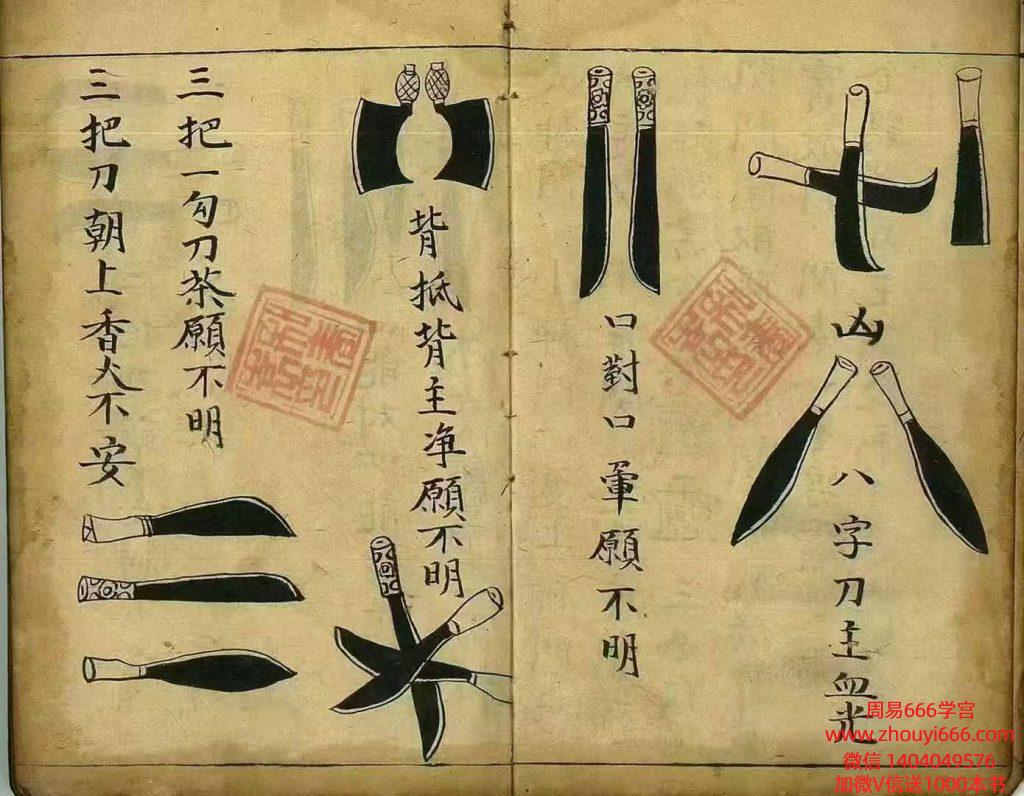 凶
八字刀主血光
口對口 軍願不明
背抵背主净願不明
三把一勾刀茶願不明
三把刀朝上香火不安
周易666学宫
www.zhouyi666.com
微信 1404049576
加微V信送1000本书